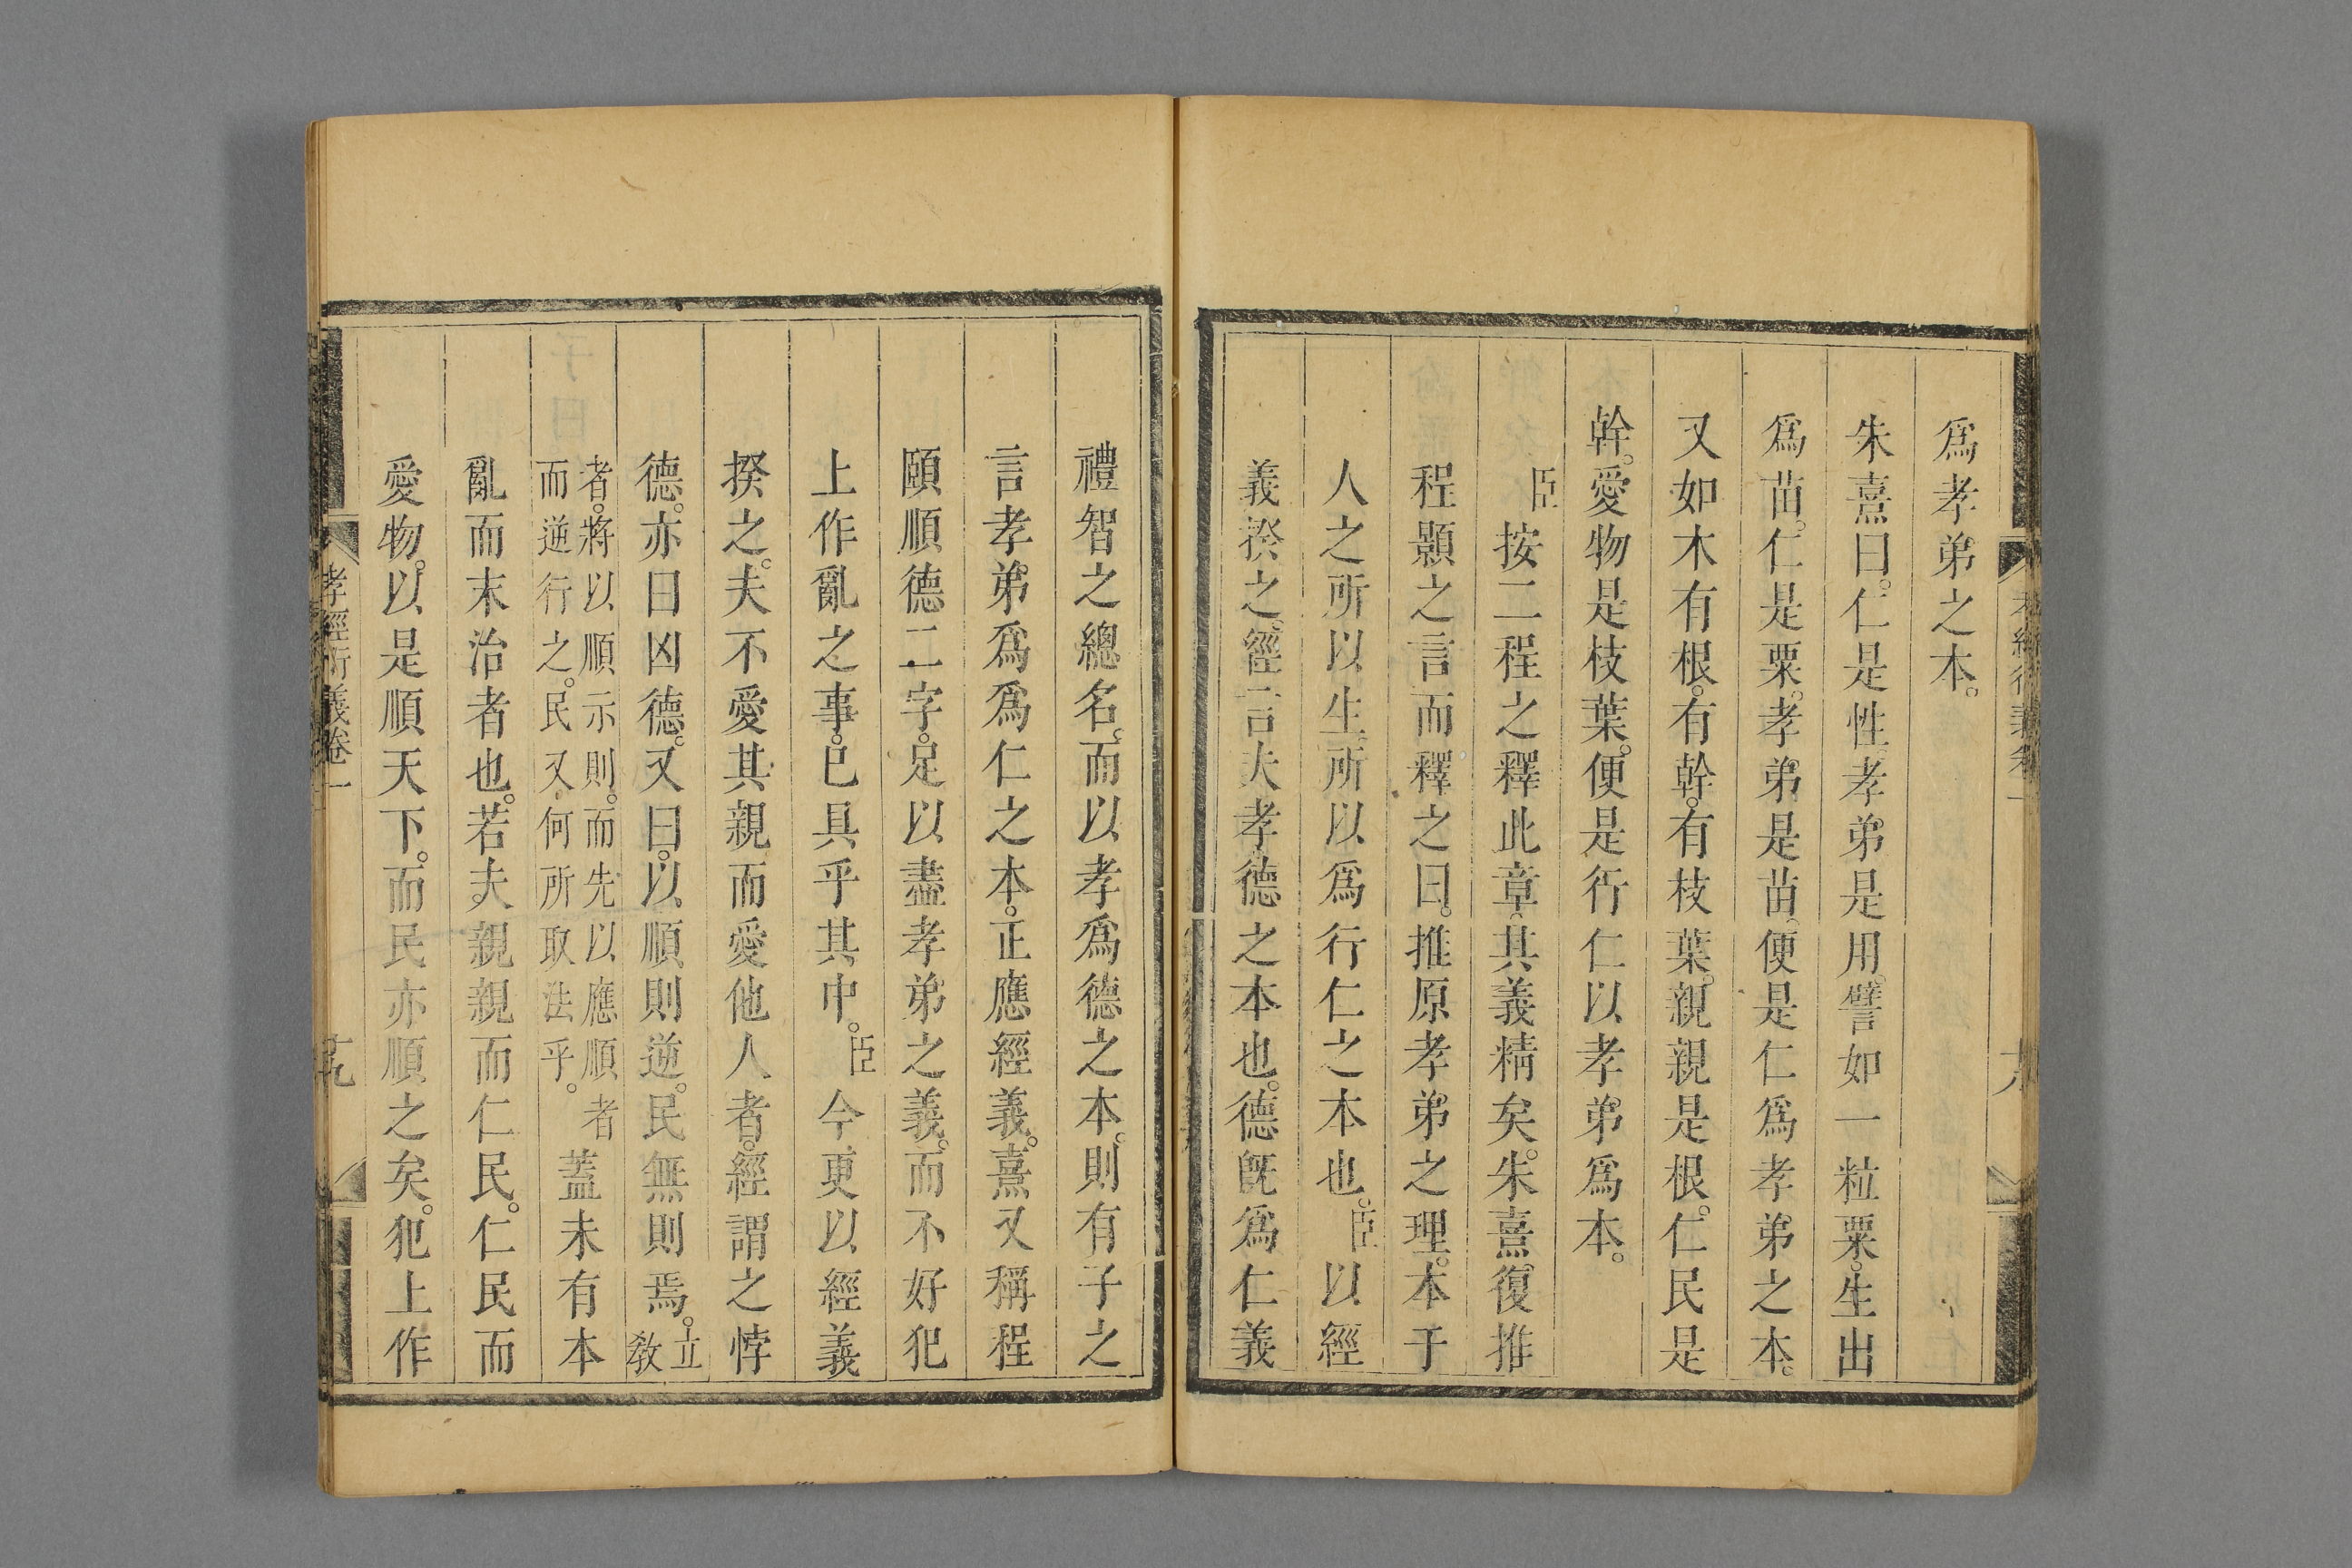 爲孝弟之本。
朱熹曰。仁是性。孝弟是用。譬如一粒粟。生出
爲苗。仁是粟。孝弟是苗。便是仁爲孝弟之本。
又如木有根。有幹。有枝葉。親親是根。仁民是
幹。愛物是枝葉。便是行仁以孝弟爲本。
臣按二程之釋此章。其義精矣。朱熹。復推
程顥之言而釋之曰。推原孝弟之理。本于
人之所以生。所以爲行仁之本也。臣以經
義揆之。經言夫孝德之本也。德旣爲仁義
禮智之總名。而以孝爲德之本。則有子之
言孝弟爲爲仁之本。正應經義。熹又稱程
頤順德二字。足以盡孝弟之義。而不好犯
上作亂之事。已具乎其中。臣今更以經義
揆之。夫不愛其親而愛他人者。經謂之悖
德。亦曰凶德。又曰。以順則逆。民無則焉。立
教
者。將以順示則。而先以應順者
而逆行之。民又何所取法乎。
蓋未有本
亂而末治者也。若夫親親而仁民。仁民而
愛物。以是順天下。而民亦順之矣。犯上作
孝經衍義卷一
十九